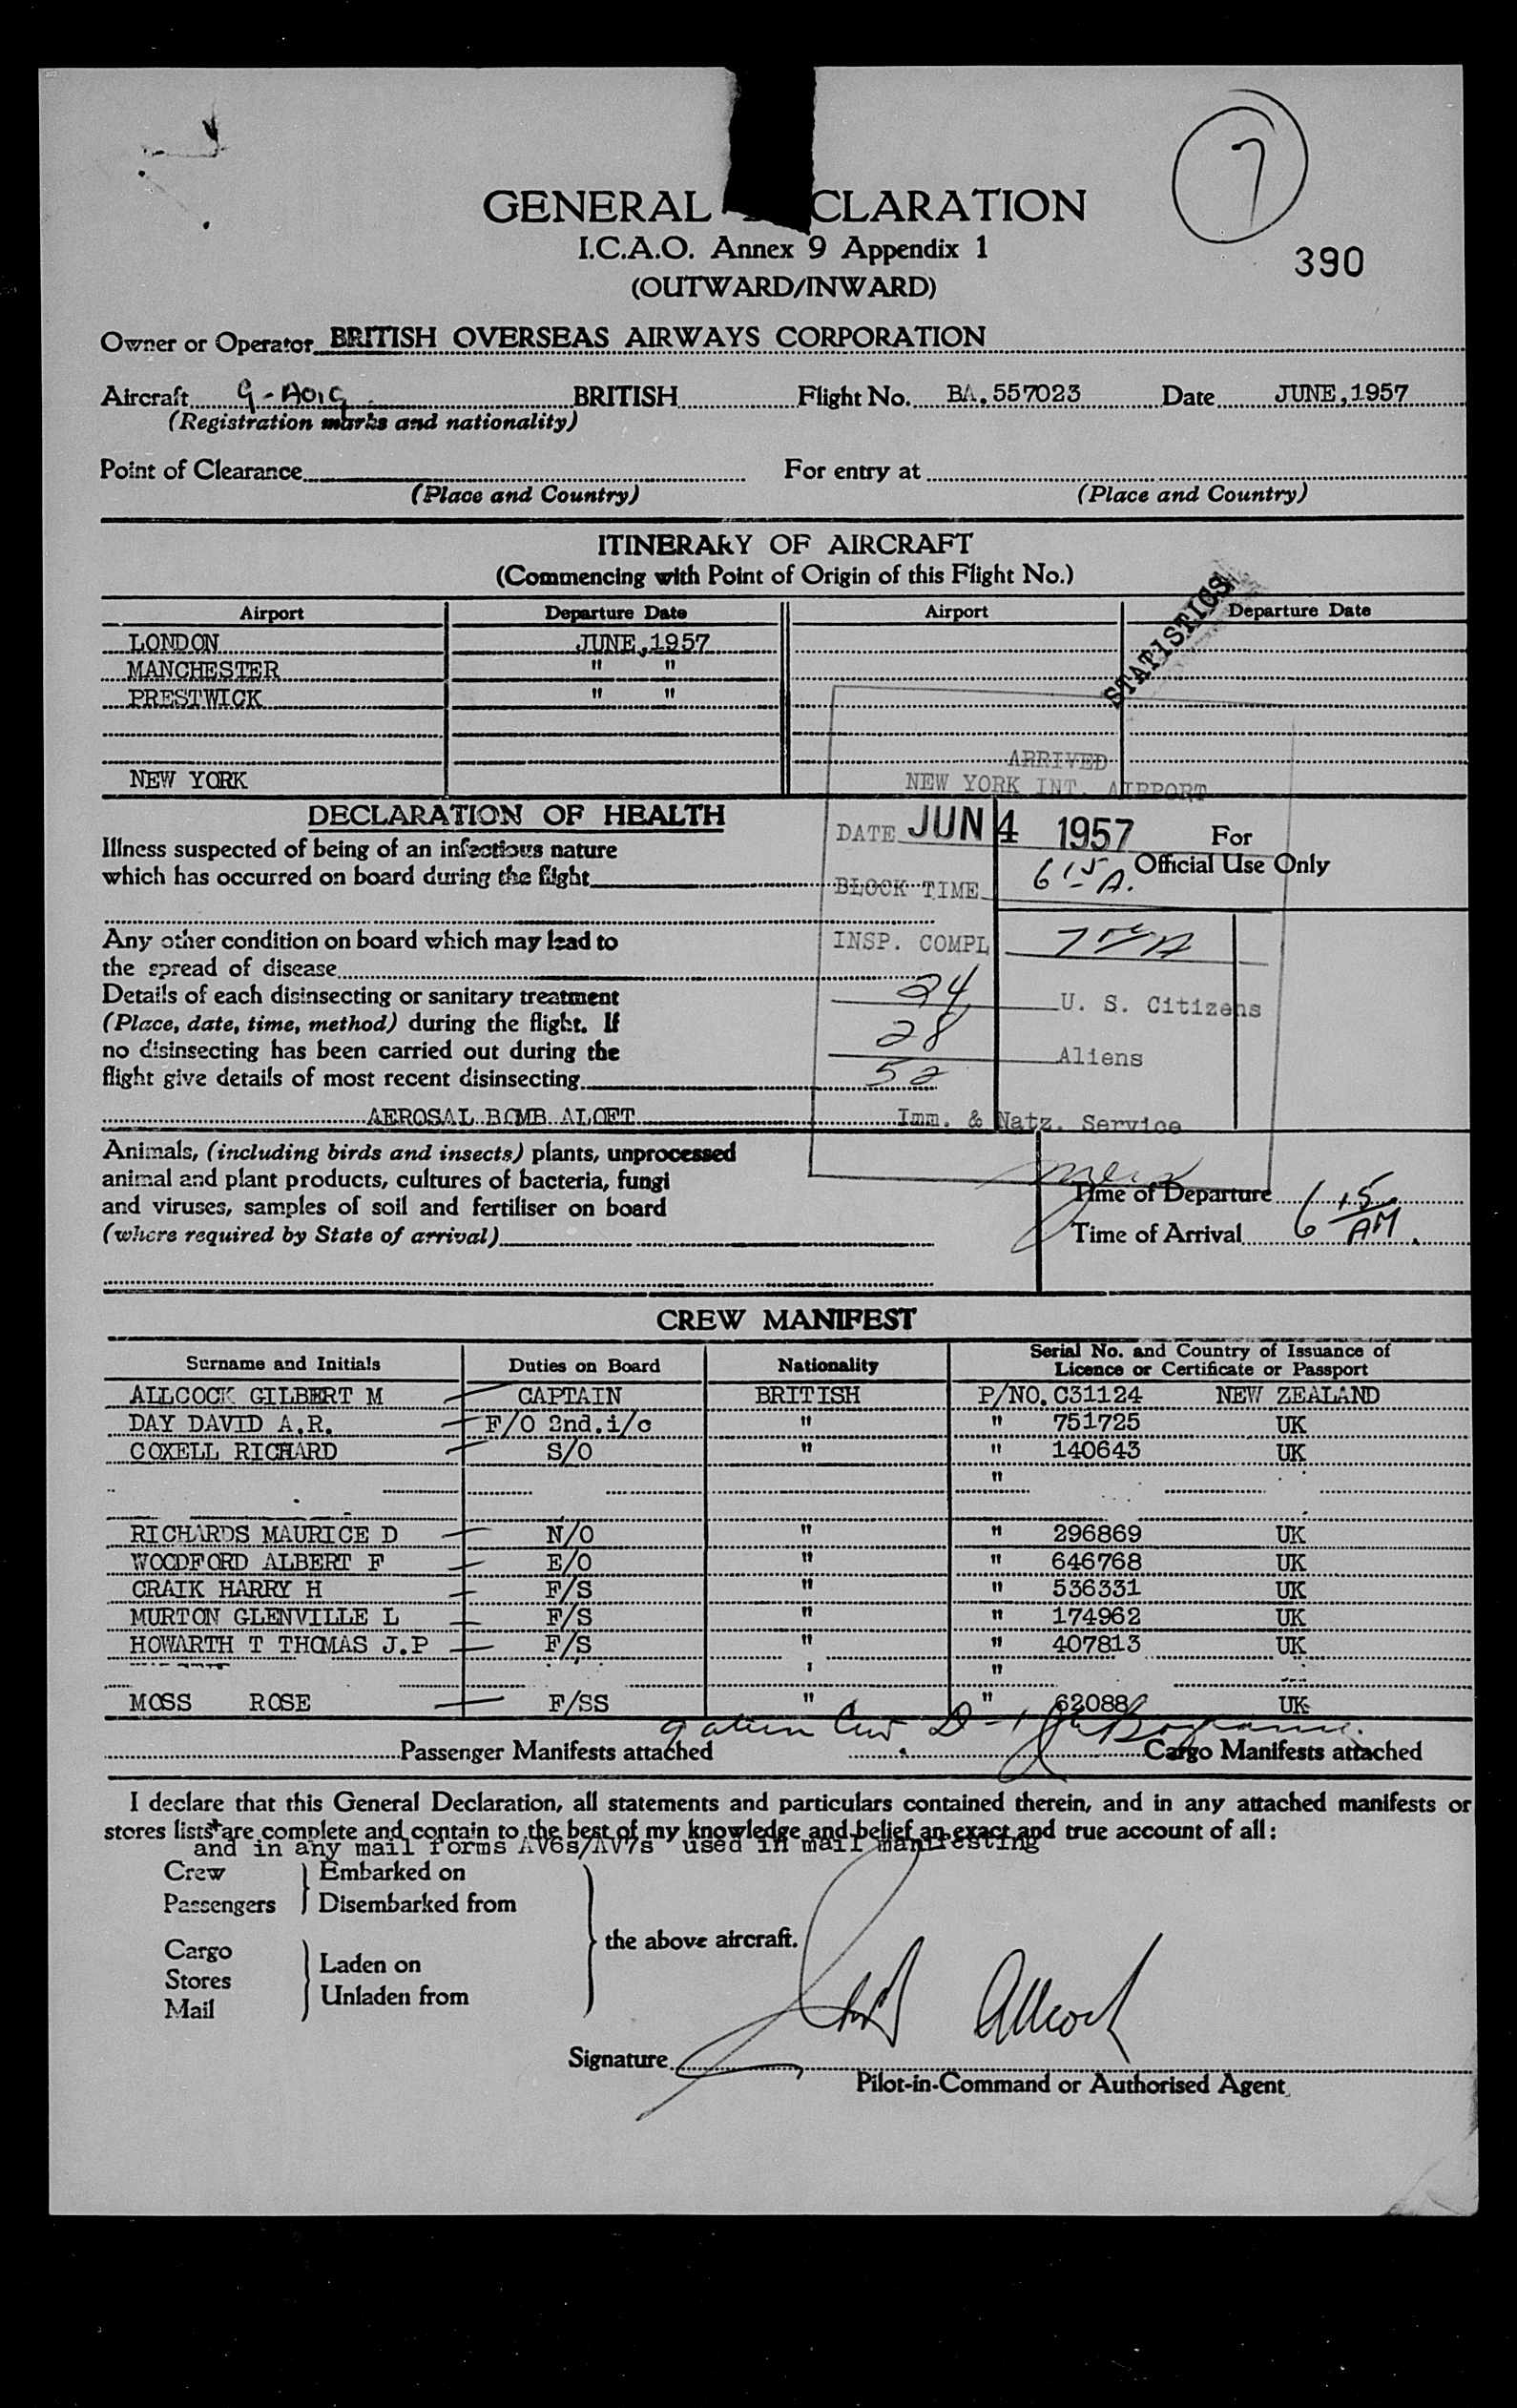 7
GENERAL CLARATION
I.C.A.O. Annex 9 Appendix 1
390
(OUTWARD/INWARD)
Owner or Operator BRITISH OVERSEAS AIRWAYS CORPORATION
Aircraft G-AOIG BRITISH Flight No. BA.557023 Date JUNE,1957
(Registration marks and nationality)
Point of Clearance For entry at
(Place and Country) (Place and Country)
ITINERARY OF AIRCRAFT
(Commencing with Point of Origin of this Flight No.)
STATISTICS
Airport Departure Date Airport Departure Date
LONDON JUNE,1957
MANCHESTER " "
PRESTWICK " "
ARRIVED
NEW YORK NEW YORK INT. AIRPORT
DECLARATION OF HEALTH
DATE JUN 4 1957 For
Illness suspected of being of an infectious nature
Official Use Only
which has occurred on board during the flight
BLOCK TIME 615 A.
Any other condition on board which may lead to INSP. COMPL
the spread of disease
Details of each disinsecting or sanitary treatment 24 U. S. Citizens
(Place, date, time, method) during the flight. If
no disinsecting has been carried out during the 28 Aliens
flight give details of most recent disinsecting 52
AEROSAL BOMB ALOFT Imm. & Natz. Service
Animals, (including birds and insects) plants, unprocessed
animal and plant products, cultures of bacteria, fungi Time of Departure
and viruses, samples of soil and fertiliser on board
(where required by State of arrival) Time of Arrival 6 15 AM.
CREW MANIFEST
Surname and Initials Duties on Board Nationality Serial No. and Country of Issuance of
Licence or Certificate or Passport
ALLCOCK GILBERT M CAPTAIN BRITISH P/NO.C31124 NEW ZEALAND
DAY DAVID A.R. F/O 2nd.i/c " " 751725 UK
COXELL RICHARD S/O " " 140643 UK
"
RICHARDS MAURICE D N/O " " 296869 UK
WOODFORD ALBERT F E/O " " 646768 UK
CRAIK HARRY H F/S " " 536331 UK
MURTON GLENVILLE L F/S " " 174962 UK
HOWARTH T THOMAS J.P F/S " " 407813 UK
"
MOSS ROSE F/SS " " 62088 UK
Passenger Manifests attached Cargo Manifests attached
I declare that this General Declaration, all statements and particulars contained therein, and in any attached manifests or
stores lists* are complete and contain to the best of my knowledge and belief an exact and true account of all:
and in any mail forms AV6s/AV7s used in mail manifesting
Crew Embarked on
Passengers Disembarked from
the above aircraft.
Cargo
Laden on
Stores
Unladen from
Mail
Allcock
Signature
Pilot-in-Command or Authorised Agent